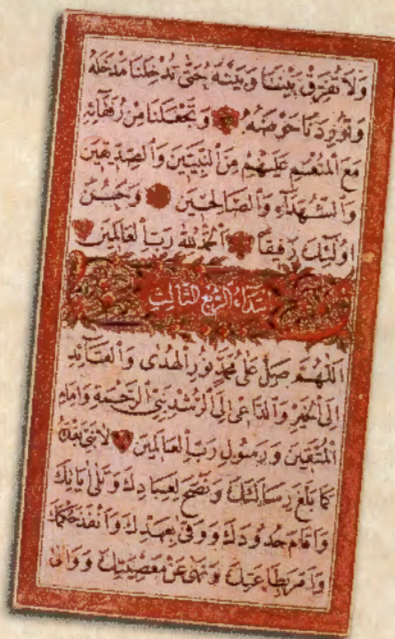 وَلَا تُفَرِّقْ بَيْنَنَا وَبَيْنَهُ حَتَّى تُدْخِلَنَا مَدْخَلَهُ
وَتُورِدَنَا حَوْضَهُ وَتَجْعَلَنَا مِنْ رُفَقَائِهِ
مَعَ الْمُنْعَمِ عَلَيْهِمْ مِنَ النَّبِيِّينَ وَالصِّدِّيقِينَ
وَالشُّهَدَاءِ وَالصَّالِحِينَ وَحَسُنَ
أُولَئِكَ رَفِيقًا اَلْحَمْدُ لِلَّهِ رَبِّ الْعَالَمِينَ
ابتداء الربع الثالث
اَللَّهُمَّ صَلِّ عَلَى مُحَمَّدٍ نُورِ الْهُدَى وَالْقَائِدِ
إِلَى الْخَيْرِ وَالدَّاعِي إِلَى الرُّشْدِ نَبِيِّ الرَّحْمَةِ وَإِمَامِ
الْمُتَّقِينَ وَرَسُولِ رَبِّ الْعَالَمِينَ لَا نَبِيَّ بَعْدَهُ
كَمَا بَلَّغَ رِسَالَتَكَ وَنَصَحَ لِعِبَادِكَ وَتَلَى آيَاتِكَ
وَأَقَامَ حُدُودَكَ وَوَفَى بِعَهْدِكَ وَأَنْفَذَ حُكْمَكَ
وَأَمَرَ بِطَاعَتِكَ وَنَهَى عَنْ مَعْصِيَتِكَ وَوَالَى